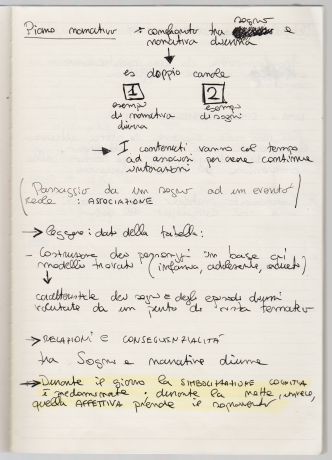 Piano narrativo → confronto tra sogno e
narrativa diurna
es doppio canale
1 2
esempi di narrativa diurna
esempi di sogni
→ I contenuti vanno col tempo
ad associarsi per creare continue
interazioni
(Passaggio da un sogno ad un evento
reale : ASSOCIAZIONE)
→ Leggere i dati della tabella:
- Costruzione dei personaggi in base ai
modelli trovati (infanzia, adolescente, adulti)
caratteristiche dei sogni e degli episodi diurni
valutate da un punto di vista tematico
→ RELAZIONI E CONSEGUENZIALITÀ
tra Sogno e narrative diurne
→ Durante il giorno la SIMBOLIZZAZIONE COGNITIVA
è predominante, durante la notte, invece,
quella AFFETTIVA prende il sopravvento